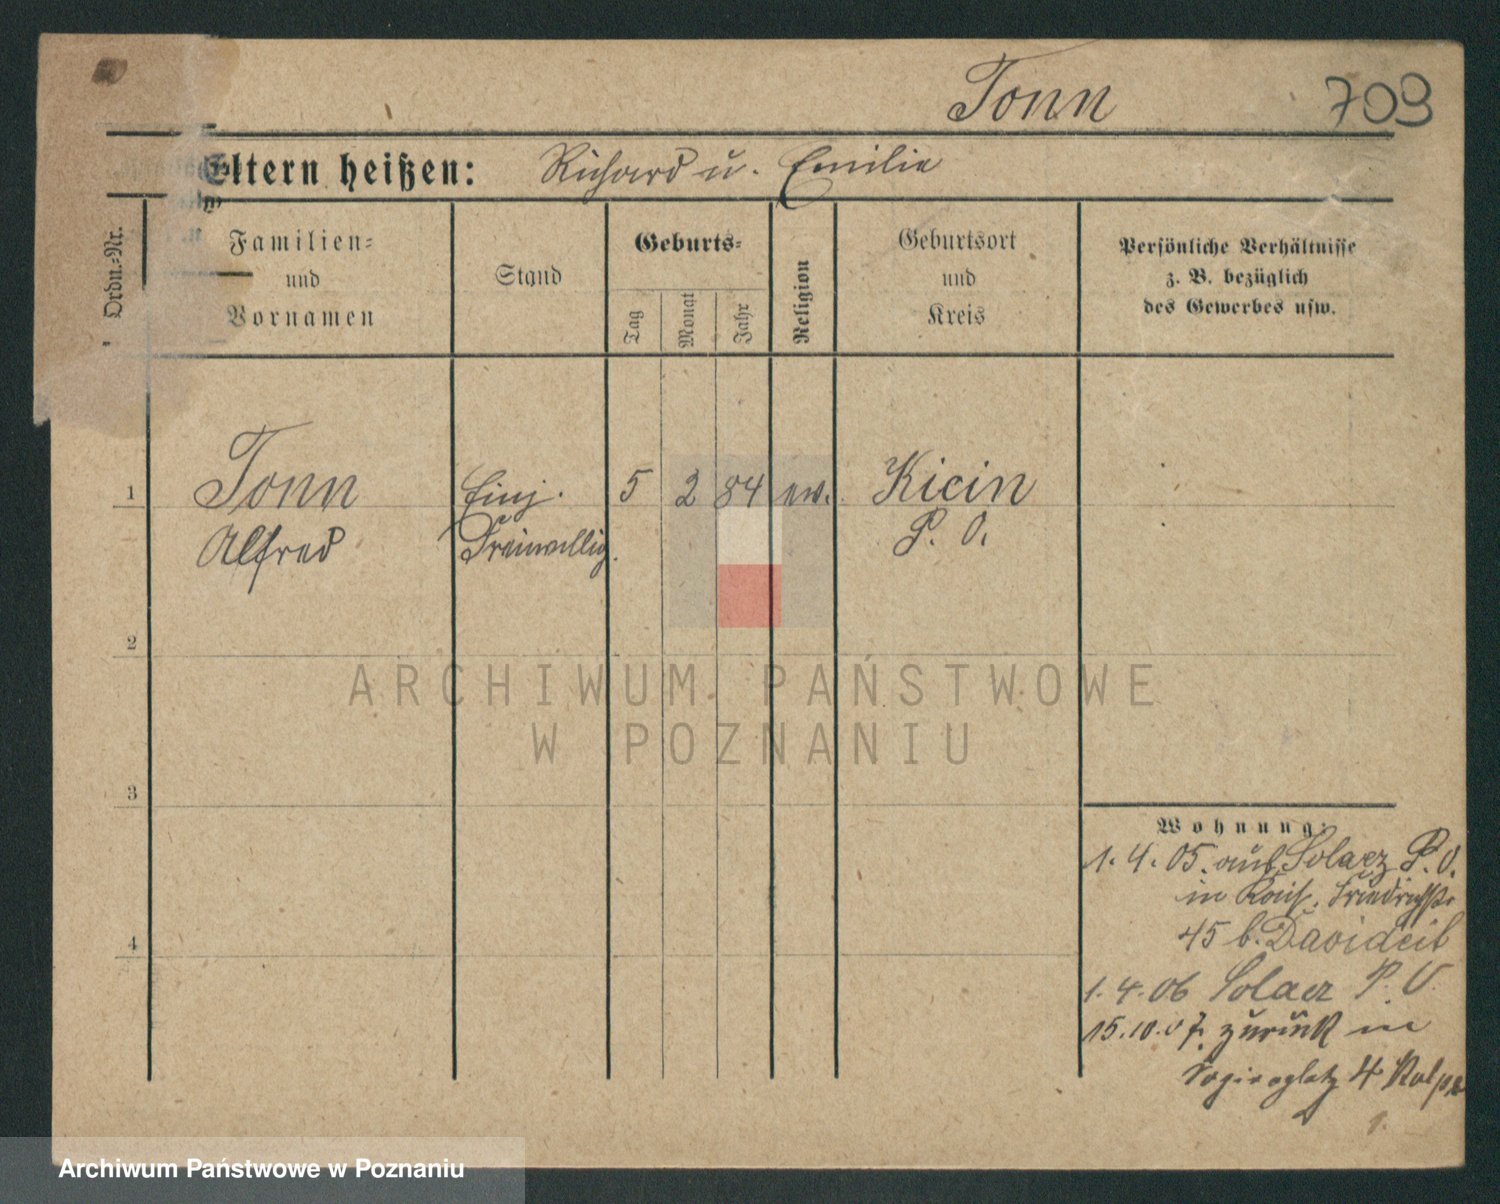 Tonn 709
Eltern heißen: Richard u. Emilie
Ordn.-Nr.
Familien-
und
Vornamen
Stand
Geburts-
Tag
Monat
Jahr
Religion
Geburtsort
und
Kreis
Persönliche Verhältnisse
z. B. bezüglich
des Gewerbes usw.
1 Tonn Einj. 5 2 84 ev. Kicin
Alfred Freiwillig. P. O.
2
3
4
ARCHIWUM PAŃSTWOWE
W POZNANIU
Wohnung:
1.4.05. auf Solacz P. O.
in Friedrichstr
45 b.
1.4.06 Solacz P. O.
15.10.07. zurück in
4
Archiwum Państwowe w Poznaniu